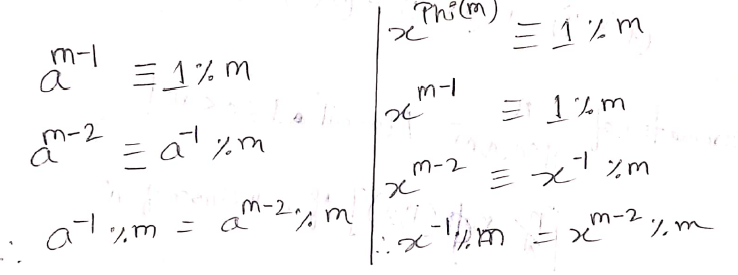 a^{m-1} ≡ 1 % m
a^{m-2} ≡ a^{-1} % m
∴ a^{-1} % m = a^{m-2} % m
x^{Phi(m)} ≡ 1 % m
x^{m-1} ≡ 1 % m
x^{m-2} ≡ x^{-1} % m
∴ x^{-1} % m = x^{m-2} % m